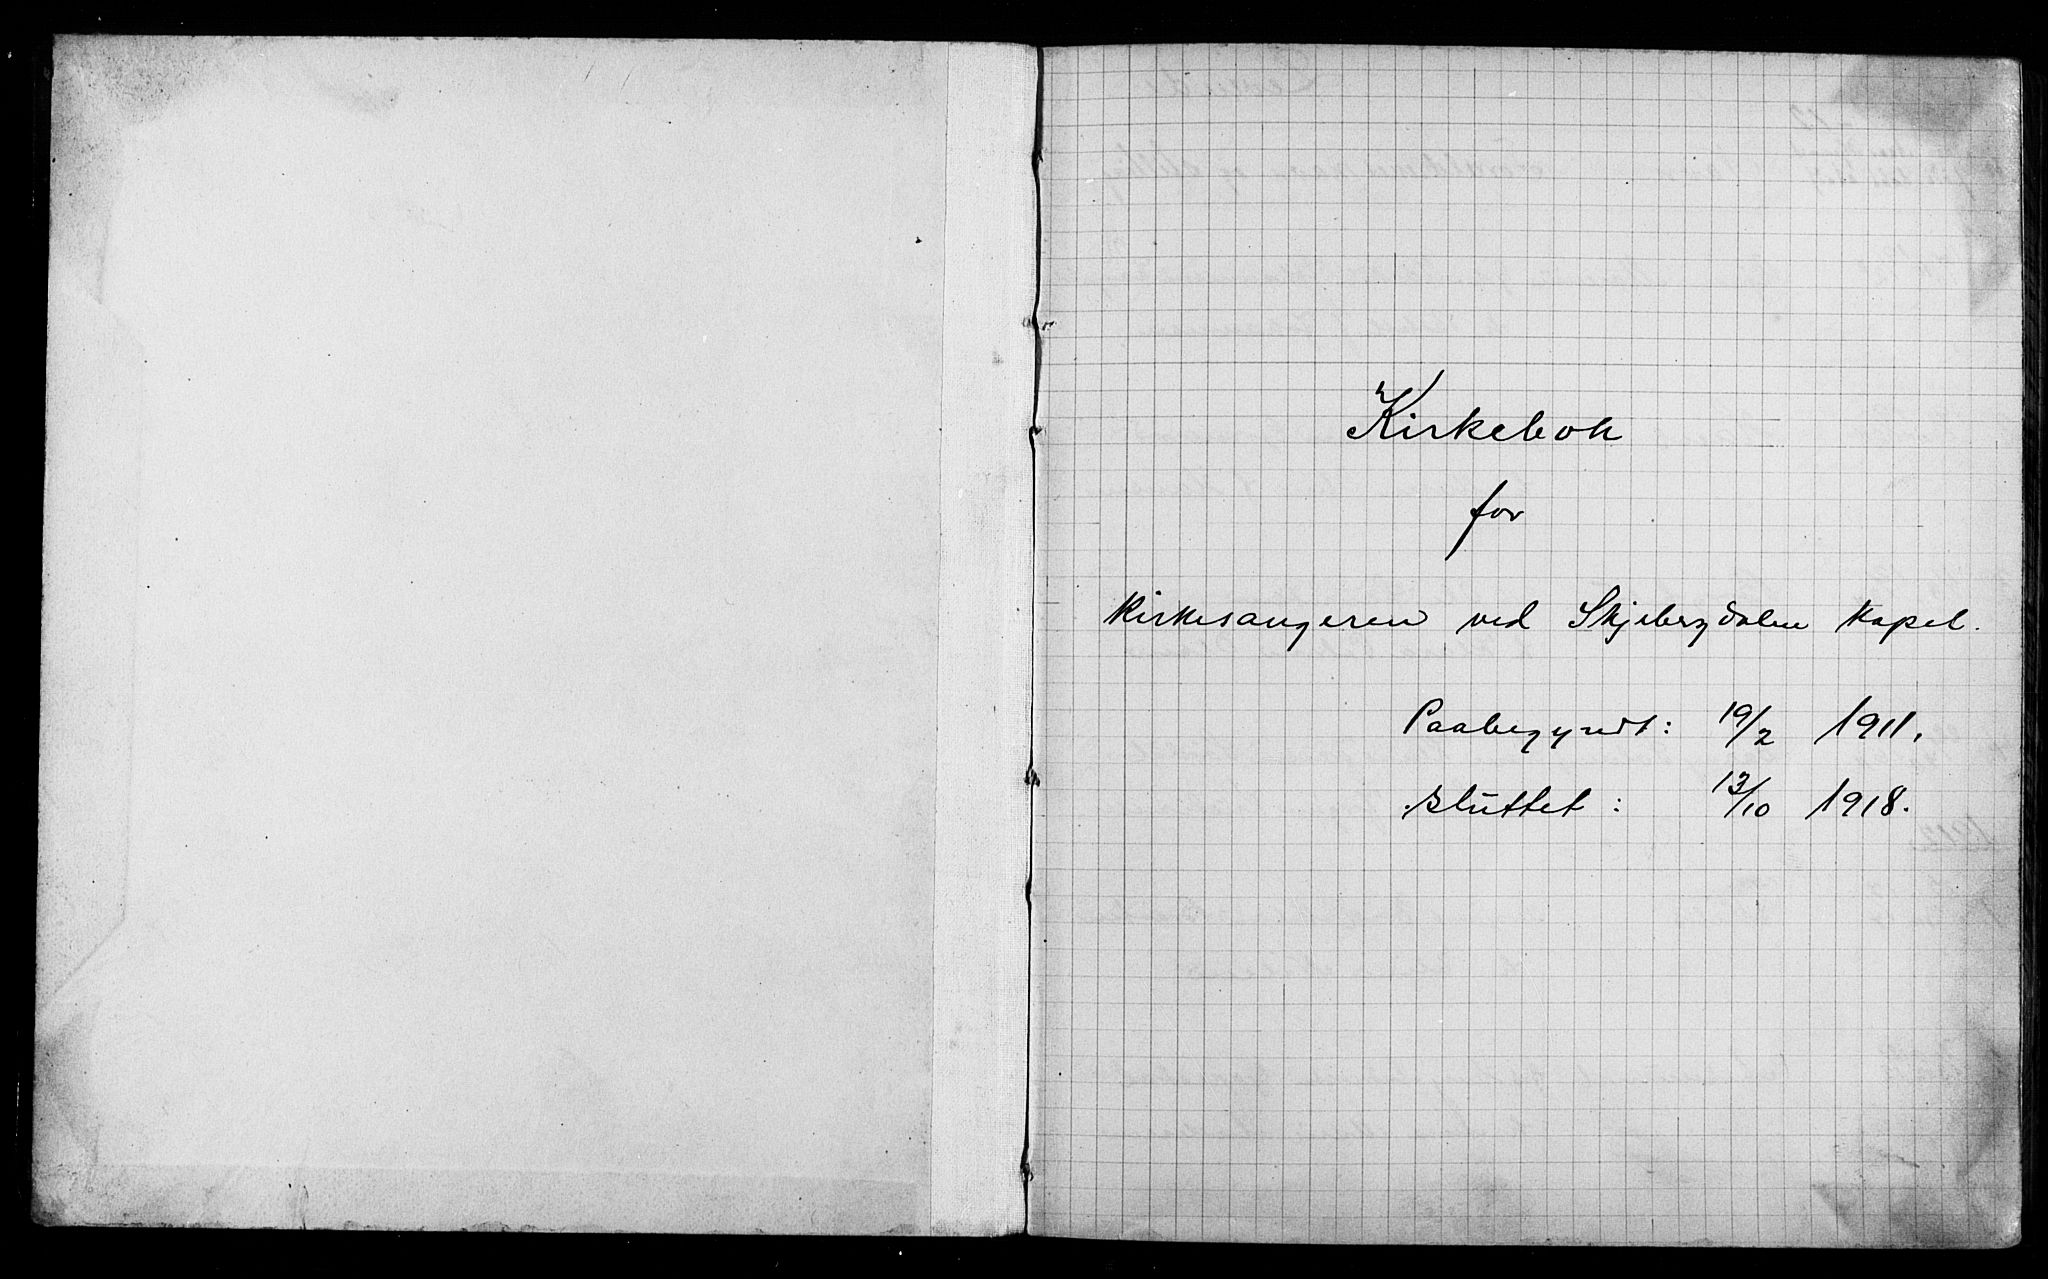 Kirkebok
for
Kirkesangeren ved Skjebergdalen Kapel.
Paabegyndt: 19/2 1911.
Sluttet: 13/10 1918.